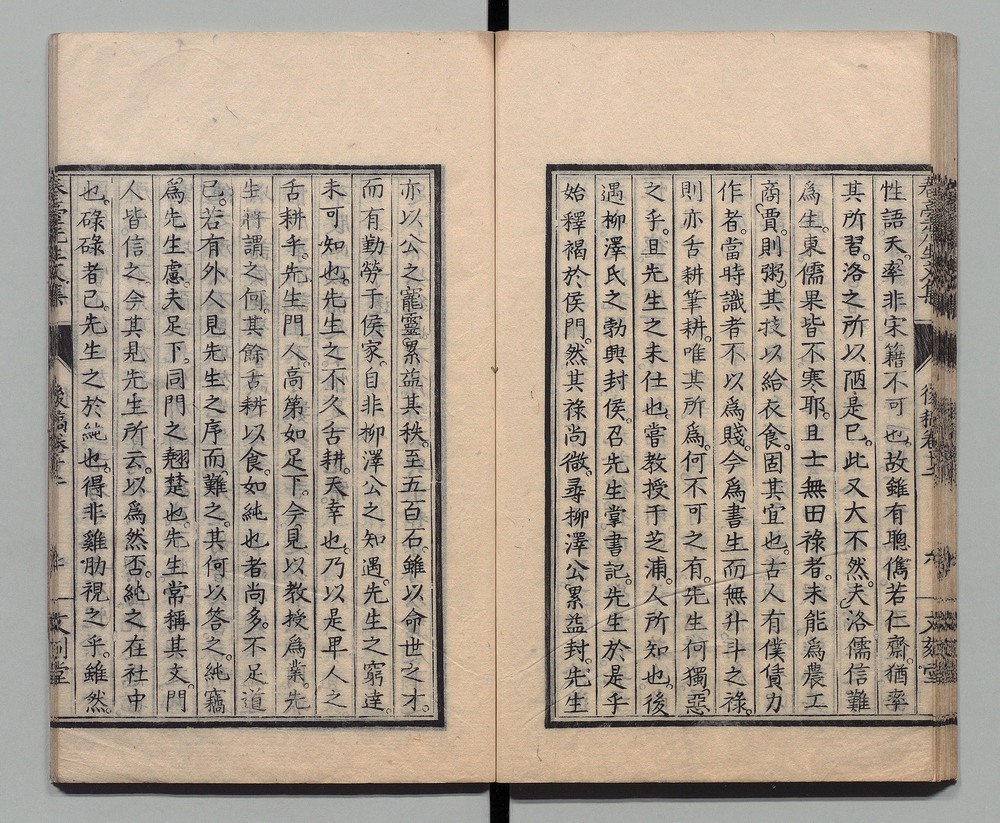 性語天。率非宋籍不可也。故雖有聰儁若仁齋。猶率
其所習。洛之所以陋是已。此又大不然。夫洛儒信難
爲生。東儒果皆不寒耶。且士無田祿者。未能爲農工
商賈。則粥其技以給衣食。固其宜也。古人有僕賃力
作者。當時識者不以爲賤。今爲書生而無升斗之祿。
則亦舌耕筆耕。唯其所爲。何不可之有。先生何獨惡
之乎。且先生之未仕也。嘗教授于芝浦。人所知也。後
遇柳澤氏之勃興封侯。召先生掌書記。先生於是乎
始釋褐於侯門。然其祿尚微。尋柳澤公累益封。先生
亦以公之寵靈。累益其秩。至五百石。雖以命世之才。
而有勤勞于侯家。自非柳澤公之知遇。先生之窮達。
未可知也。先生之不久舌耕。天幸也。乃以是卑人之
舌耕乎。先生門人。高第如足下。今見以教授爲業。先
生將謂之何。其餘舌耕以食。如純也者尚多。不足道
已。若有外人見先生之序而難之。其何以答之。純竊
爲先生慮。夫足下。同門之翹楚也。先生常稱其文。門
人皆信之。今其見先生所云。以爲然否。純之在社中
也。碌碌者已。先生之於純也。得非雞肋視之乎。雖然。
後稿卷